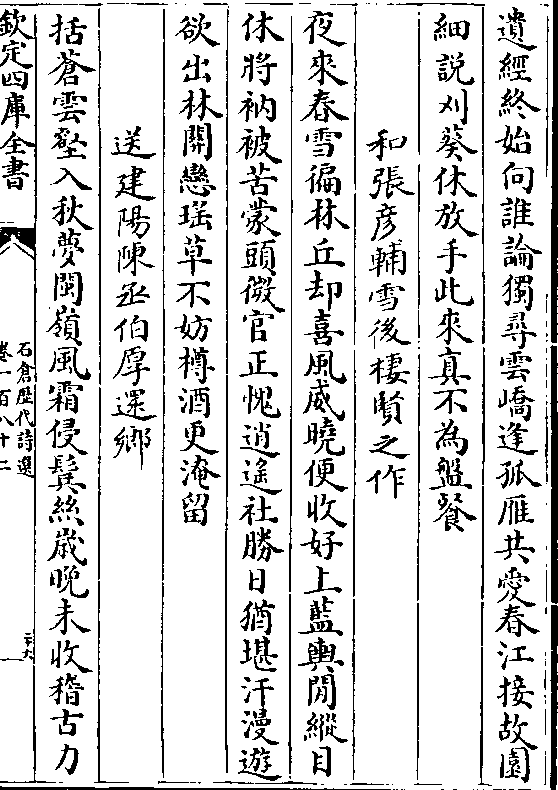 遺經終始向誰論獨尋雲嶠逢孤雁共愛春江接故園
細說刈葵休放手此來真不為盤餐
和張彦輔雪後棲賢之作
夜來春雪徧林丘却喜風威曉便收好上藍輿閒縱目
休將衲被苦蒙頭微官正愧逍遙社勝日猶堪汗漫遊
欲出林關戀瑶草不妨樽酒更淹留
送建陽陳丞伯厚還鄉
括蒼雲壑入秋夢閩嶺風霜侵鬂絲歲晚未收稽古力
欽定四庫全書
石倉歷代詩選
卷一百八十二